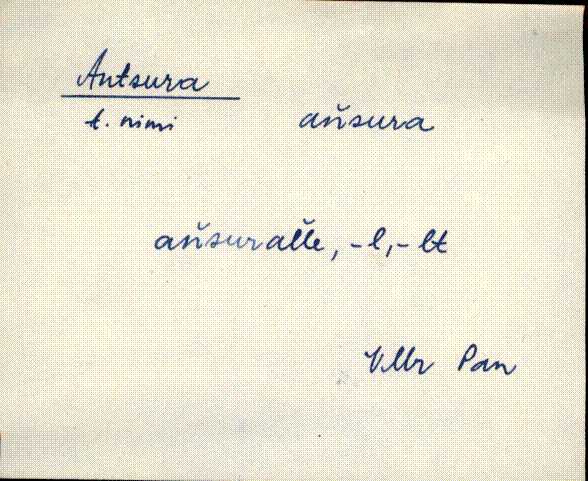 Antsura
t. nimi   aňsura
aňsuralľe, -l, -lt
VMr Pan